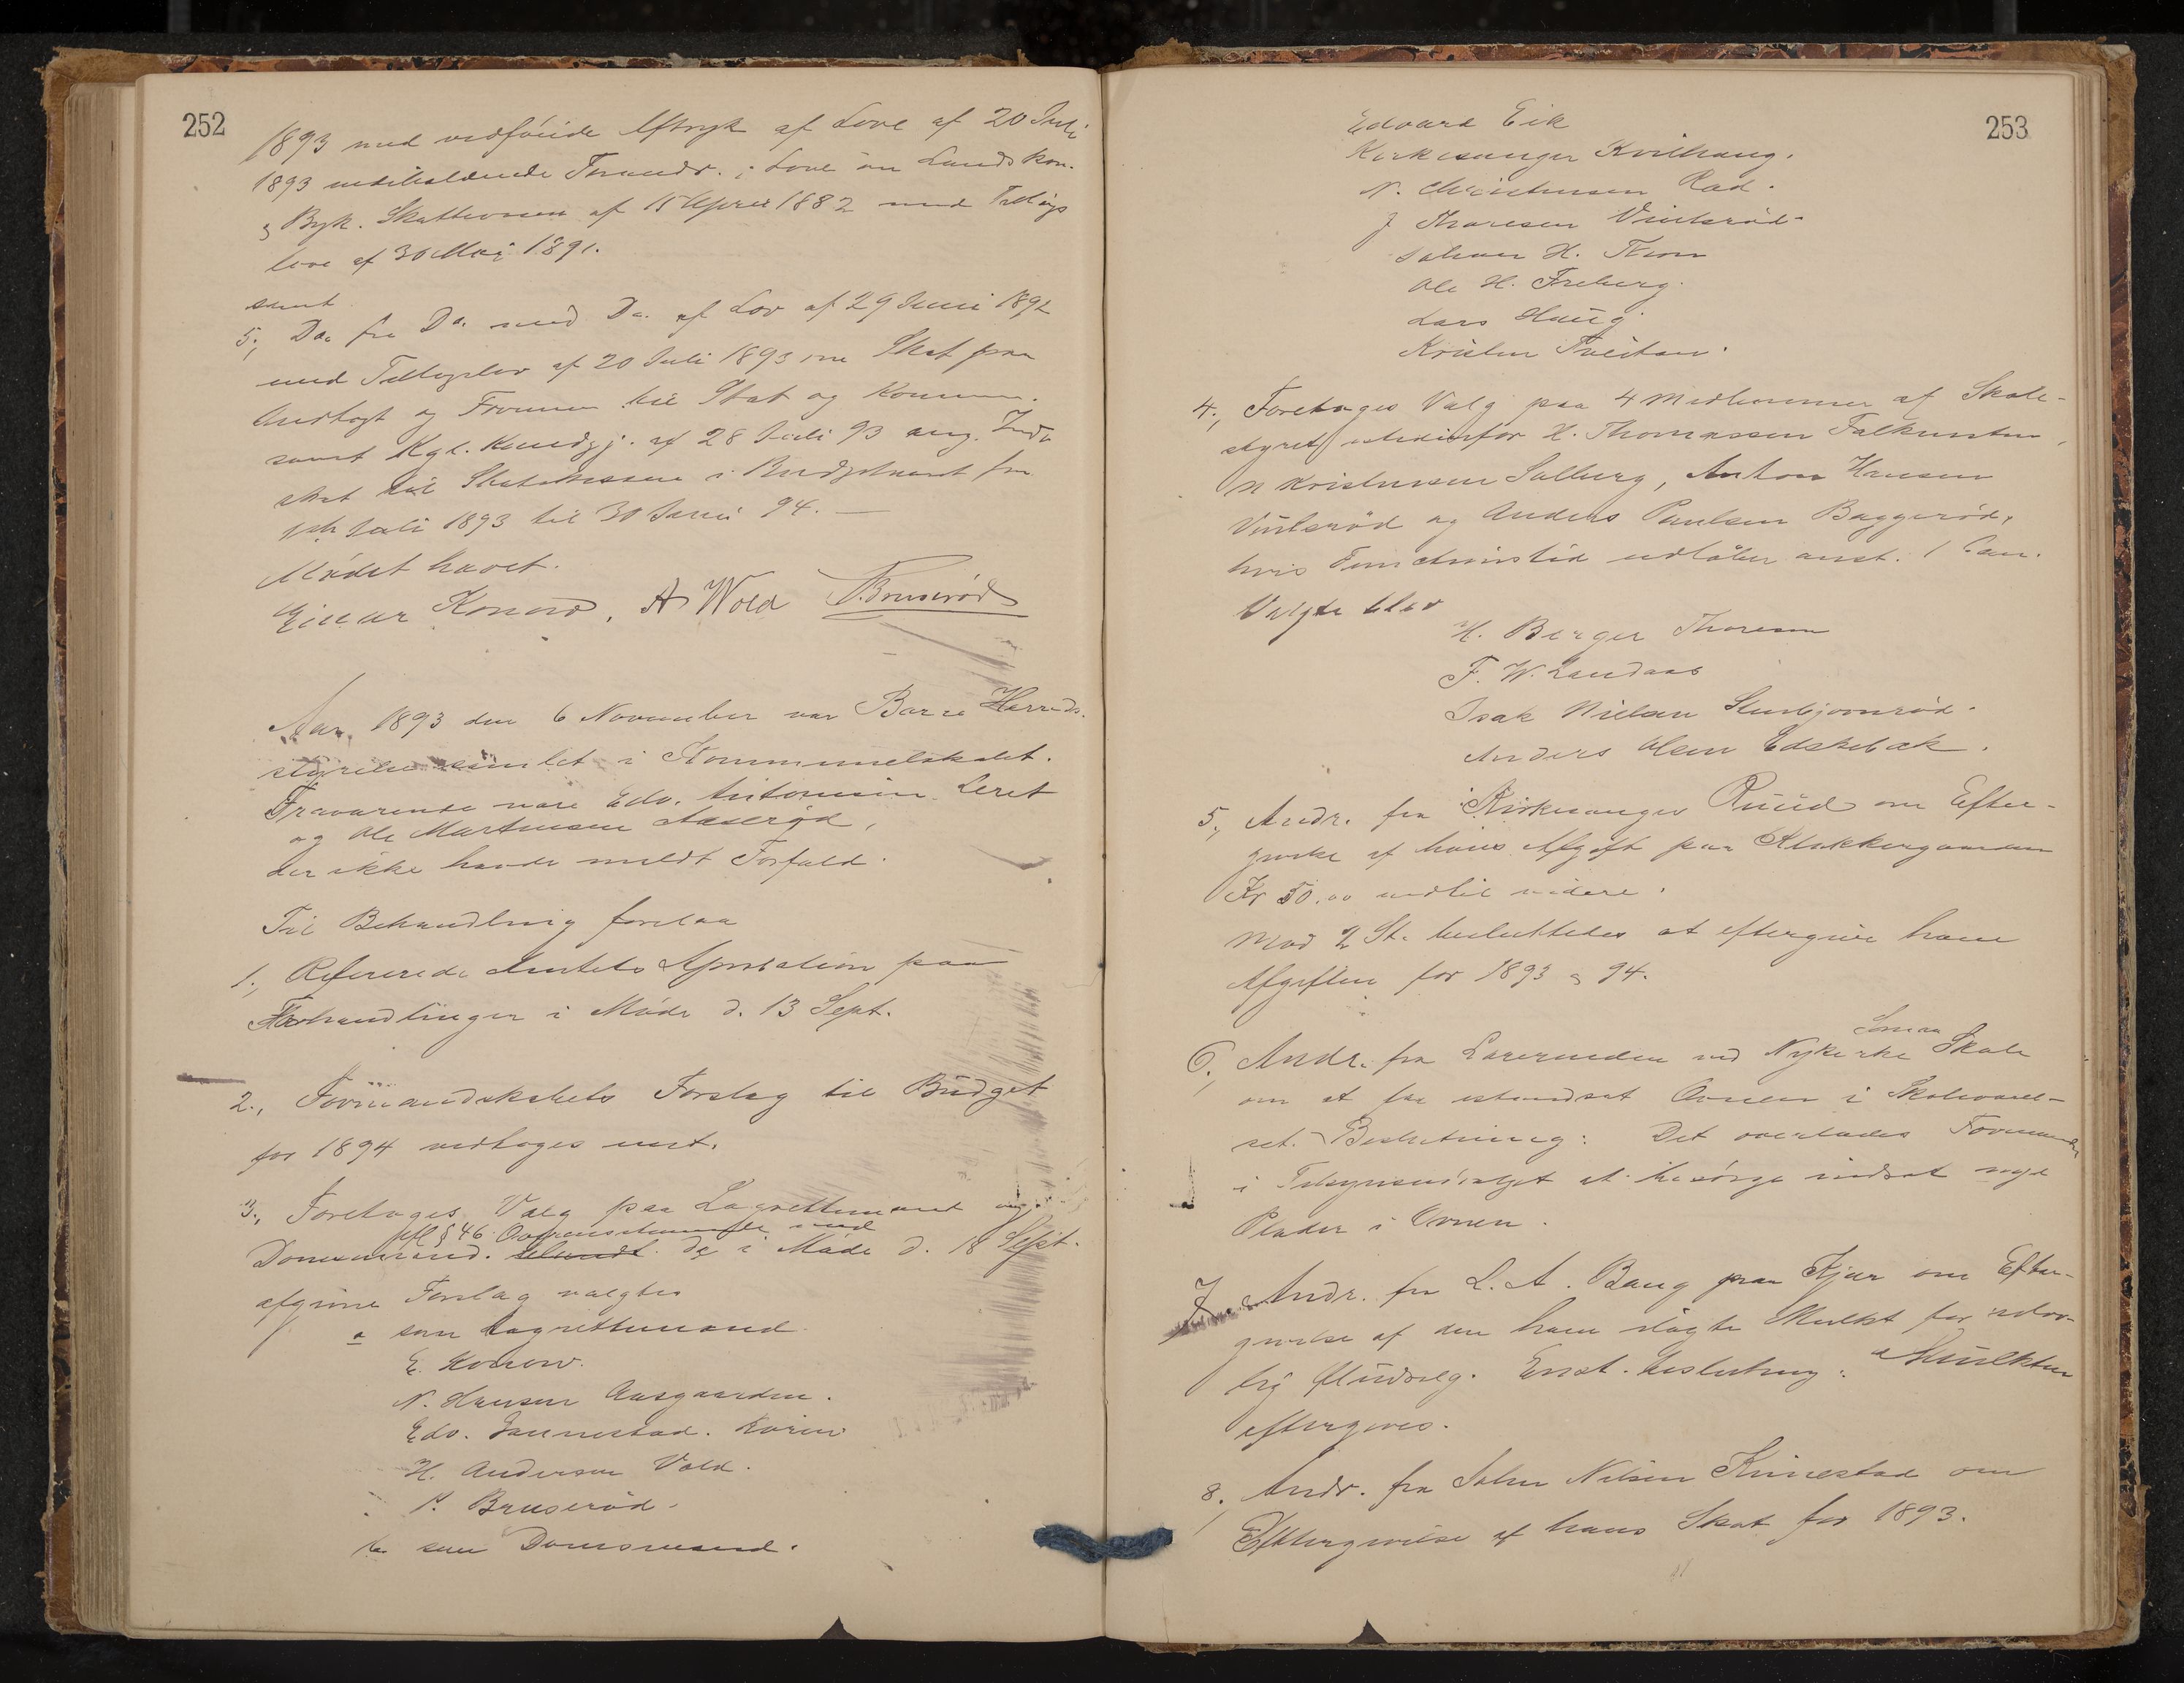 252
1893 med vedføiede Aftryk af Love af 20 Juli
1893 indeholdende Forandr. i Love om Lands kom.
og Byk. Skattevæsen af 15 April 1882 med Tillægs
love af 30 Mai 1891.
samt
5., Do. fra Do. med Do. af Lov af 29 Juni 1892
med Tillægslov af 20 Juli 1893 om Skat paa
Indtægt og Formue til Stat og Kommune.
samt Kgl. Kundgj. af 28 Juli 93 ang.
skat til Statskassen i Budgetaaret fra
1ste Juli 1893 til 30 Juni 94. —
Mødet hævet.
Einar Konow, A Wold P. Bruserød
Aar 1893 den 6 November var Borre Herreds-
styrelse samlet i Kommunelokalet.
Fraværende vare Edv. Antonsen Leret
og Ole Martinsen Aaserød,
der ikke havde meldt Forfald.
Til Behandling forelaa
1., Refererede Amtets Approbation paa
Forhandlinger i Møde d. 13 Sept.
2., Formandskabets Forslag til Budget
for 1894 vedtoges enst.
3., Foretoges Valg paa Lagrettemænd og
ifl § 46. Overensstemmelse med
Domsmænd. de i Møde d. 18 Sept.
afgivne Forslag valgtes
a som Lagrettemænd
E. Konow.
N. Hansen Aasgaarden.
Edv. Jannestad.
H. Andersen Vold.
P. Bruserød.
b som Domsmænd.
253
Edvard Eik
Kirkesanger Kvilhaug.
N. Christensen Rød.
J Thoresen Vintersrød.
Johan H.
Ole H. Freberg.
Lars Haug.
Kristen Tveitan.
4., Foretoges Valg paa 4 Medlemmer af Skole-
styret istedenfor H. Thomassen Falkensten,
N Kristensen Solberg, Anton Hansen
Vintersrød og Anders Paulsen Baggerød,
hvis Functionstid udløber anst. 1 Jan.
Valgte blev
H. Berger Thoresen
F. W. Landaas
Isak Nielsen Stenbjørnrød.
Anders Olsen Edskebæk.
5., Andr. fra Kirkesanger Ruud om Efter-
givelse af hans Afgift paa Klokkergaarden
Kr 50.00 indtil videre.
Mod 2 St. besluttedes at eftergive ham
Afgiften for 1893 og 94.
6., Andr. fra Lærerinden ved Nykirke Skole
om at faa istandsat Ovnen i Skoleværel-
set. Beslutning: Det overlades Formanden
i Tilsynsudvalget at besørge indsat nye
Plader i Ovnen.
7., Andr. fra L. A. Bang paa Kjær om Efter-
givelse af den ham ilagte Mulkt for ulov-
lig Øludsalg. Enst. beslutning: Mulkten
eftergives.
8., Andr. fra Johan Nilsen Knivestad om
Eftergivelse af hans Skat for 1893.